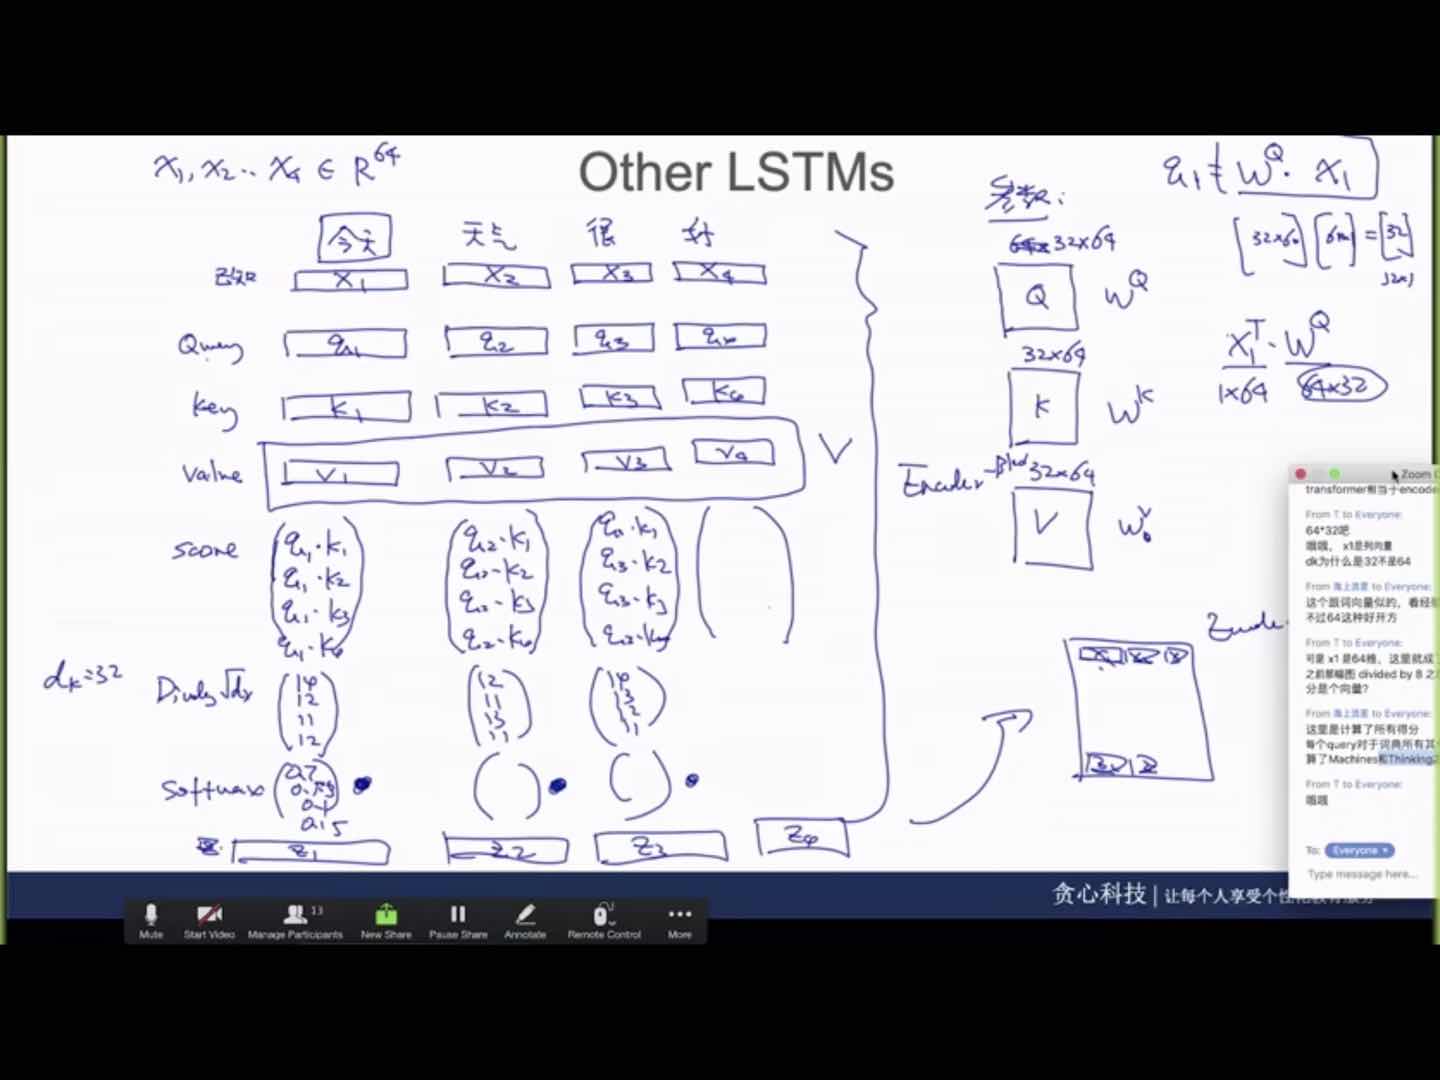 x₁, x₂ .. x₄ ∈ R⁶⁴
Other LSTMs
今天 天气 很 好
已知 x₁ x₂ x₃ x₄
Query q₁ q₂ q₃ q₄
key k₁ k₂ k₃ k₄
value v₁ v₂ v₃ v₄ V
score
q₁·k₁ q₂·k₁ q₃·k₁
q₁·k₂ q₂·k₂ q₃·k₂
q₁·k₃ q₂·k₃ q₃·k₃
q₁·k₄ q₂·k₄
dₖ=32
14 12 14
12 11 13
11 13 12
12 11 11
Softmax
0.1
0.15
z₁ z₂ z₃ z₄
参数:
32x64
Q W^Q
32x64
K W^K
Encoder-Block 32x64
V W^V
q₁ = W^Q · x₁
[32x64] [64x1] = [32]
32x1
x₁ᵀ · W^Q
1x64 64x32
Zoom
transformer相当于encode
From T to Everyone:
64*32吧
哦哦， x1是列向量
dk为什么是32不是64
From 海上流星 to Everyone:
这个跟词向量似的，看经
不过64这种好开方
From T to Everyone:
可是 x1 是64维，这里就成
之前那幅图 divided by 8 之
分是个向量?
From 海上流星 to Everyone:
这里是计算了所有得分
每个query对于词典所有其
算了Machines和Thinking
From T to Everyone:
哦哦
To: Everyone
Type message here...
贪心科技 | 让每个人享受个性化教育服务
Mute Start Video Manage Participants 13 New Share Pause Share Annotate Remote Control More